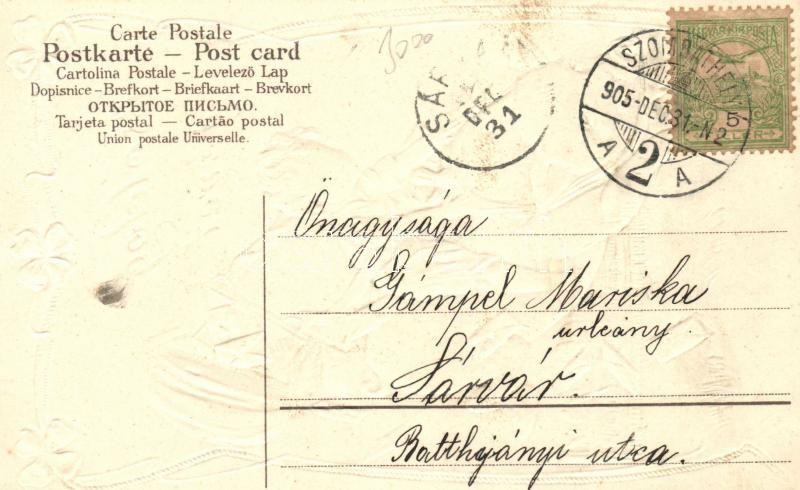 Carte Postale
Postkarte — Post card
Cartolina Postale – Levelező Lap
Dopisnice – Brefkort – Briefkaart – Brevkort
ОТКРЫТОЕ ПИСЬМО.
Tarjeta postal — Cartão postal
Union postale Universelle.
3000
SÁR
DEC
31
905-DEC.31.-N2
A 2 A
MAGYAR KIR. POSTA
5
Önagysága
Gámpel Mariska
urleány.
Sárvár.
Batthyányi utca.